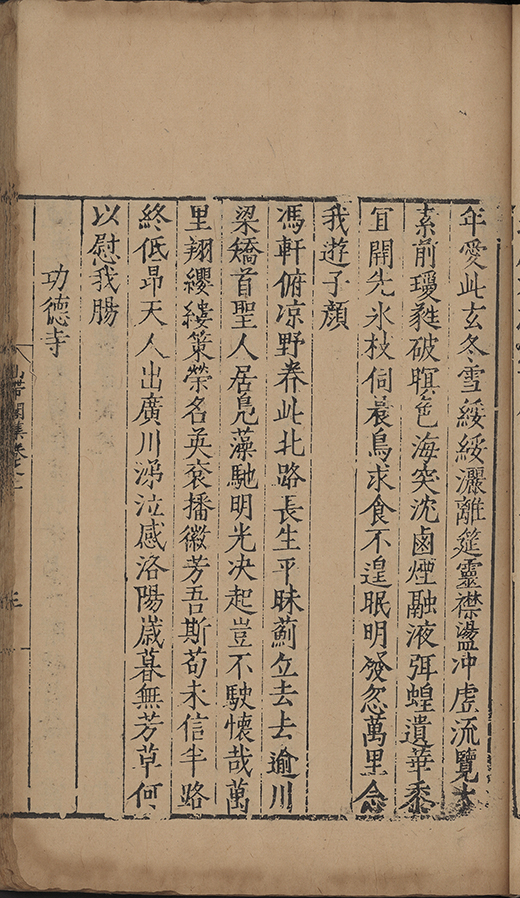 年愛此玄冬雪綏綏灑離筵靈襟盪冲虛流覽太
素前瓊甤破暝色海突沈鹵煙融液弭蝗遺華黍
宜開先氷枝伺晨鳥求食不遑眠明發忽萬里念
我遊子顏
馮軒俯凉野眷此北路長生平昧薊丘去去逾川
梁矯首聖人居鳧藻馳明光决起豈不駛懷哉萬
里翔纓縷策榮名英衮播徽芳吾斯苟未信半路
終低昂天人出廣川涕泣感洛陽歲暮無芳草何
以慰我腸
功德寺